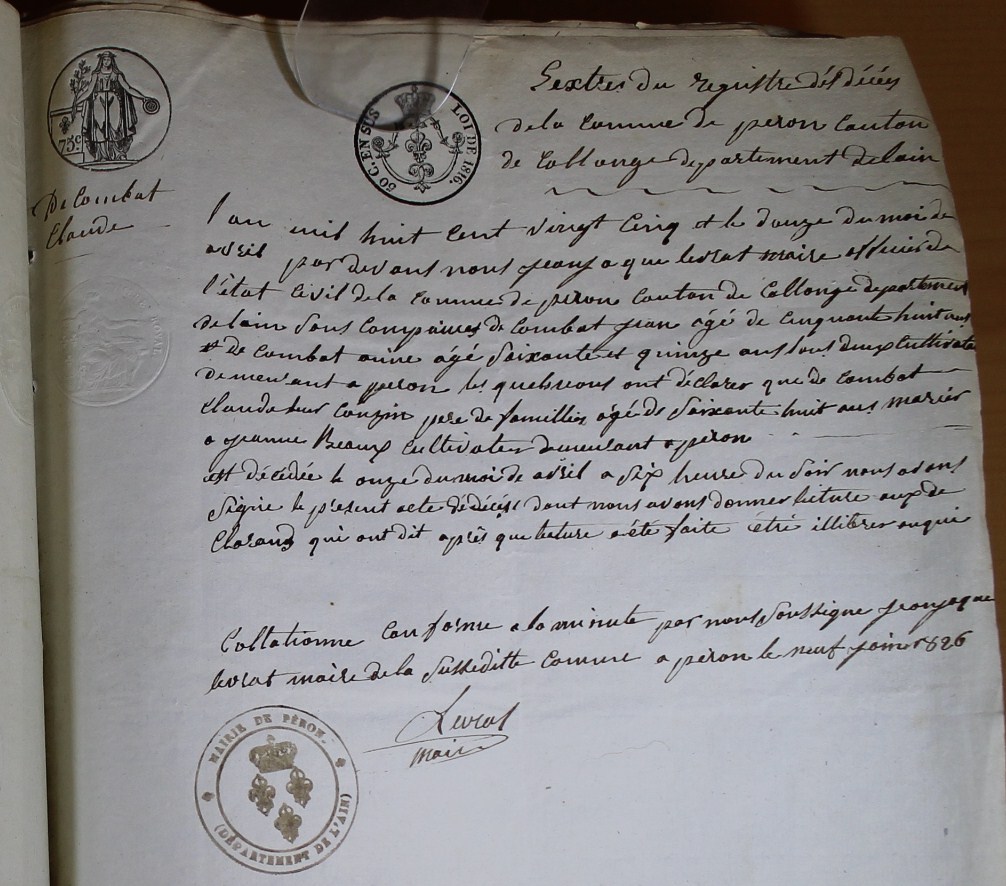 75c
50 C. EN SUS
LOI DE 1816.
Lextres du registre dés décés
de la Commue de peron Canton
de Collonge departement de lain
De Combat
Claude
l'an mil huit Cent vingt Cinq et le douze du moi de
avril par devans nous jean jaque levrat maire officier de
l'état Civil de la Commue de peron Canton de Collonge departement
de lain Sons Comparues de Combat jean âgé de Cinquante huit ans
et de Combat aimé âgé Soixante et quinze ans tous deux Cultivate
demeurant a peron les quels nous ont déclarer que de Combat
Claude leur Couzin pere de familles âgé de Soixante huit ans mariér
a jeanne Beaux Cultivater demeurant a peron
est décédée le onze du moi de avril a Six heure du Soir nous avons
Signé le présent acte dédécés dont nous avons donner lecture aux dé
Clarans qui ont dit après que lature a été faite être illitérer
Collationne Conforme a la minute par nous Soussigne jean jaque
levrat maire de la Sussditte Commue a peron le neuf janier 1826
Levrat
Maire
MAIRIE DE PÉRON
(DÉPARTEMENT DE L'AIN)